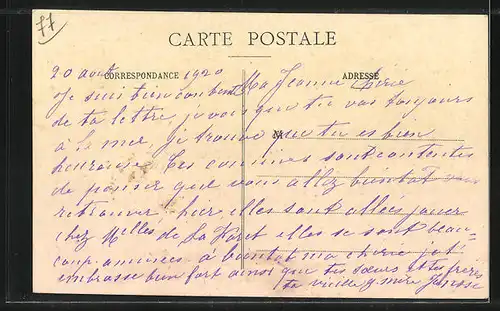 77
CARTE POSTALE
CORRESPONDANCE ADRESSE
20 août 1920 Ma Jeanne chérie
Je suis bien contente
de ta lettre, je vois que tu vas toujours
à la mer, je trouve que tu es bien
heureuse. Tes cousines sont contentes
de penser que vous allez bientot vous
retrouver hier elles sont allées jouer
chez Melles de la Foret elles se sont beau-
coup amusées à bientot ma chérie je t'
embrasse bien fort ainsi que tes sœurs et tes frères
ta vieille g mère